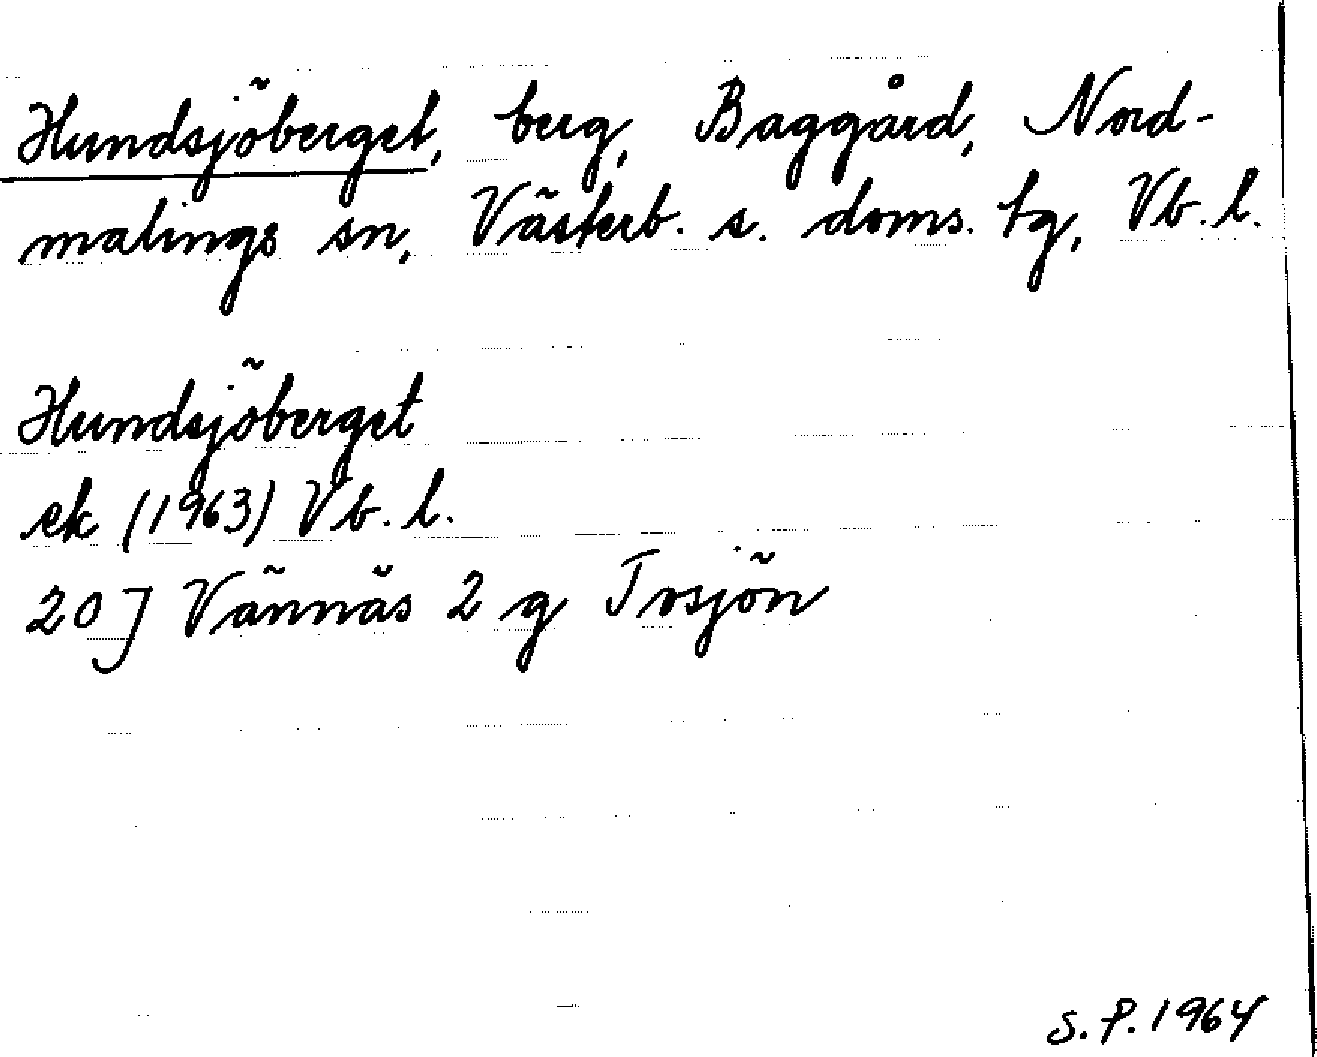 Hundsjöberget, berg, Baggård, Nord-
malings sn, Västerb. s. doms. tg, Vb. l.
Hundsjöberget
ek (1963) Vb. l.
20 J Vännäs 2 g Tvsjön
S. P. 1964